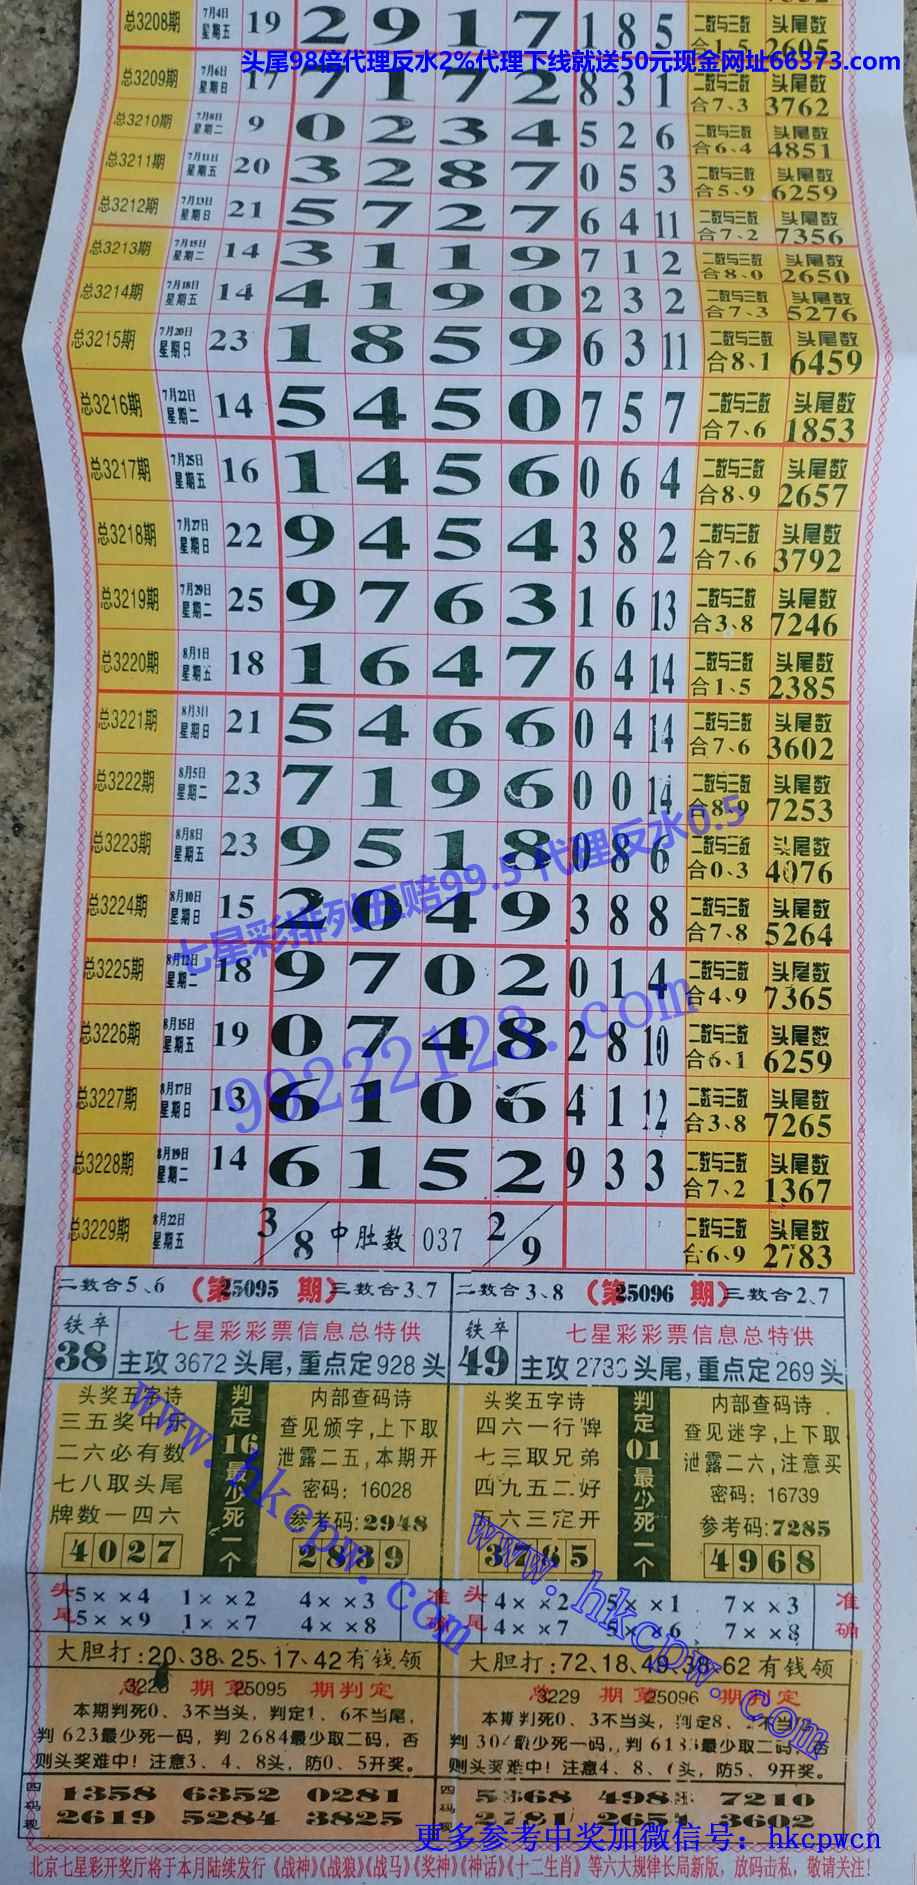 总3208期 7月4日 星期五 19 2 9 1 7 1 8 5 二数与三数合1、5 头尾数 2695
头尾98倍代理反水2%代理下线就送50元现金网址66373.com
总3209期 7月6日 星期日 17 7 1 7 2 8 3 1 二数与三数合7、3 头尾数 3762
总3210期 7月8日 星期二 9 0 2 3 4 5 2 6 二数与三数合6、4 头尾数 4851
总3211期 7月11日 星期五 20 3 2 8 7 0 5 3 二数与三数合5、9 头尾数 6259
总3212期 7月13日 星期日 21 5 7 2 7 6 4 11 二数与三数合7、2 头尾数 7356
总3213期 7月15日 星期二 14 3 1 1 9 7 1 2 二数与三数合8、0 头尾数 2650
总3214期 7月18日 星期五 14 4 1 9 0 2 3 2 二数与三数合7、3 头尾数 5276
总3215期 7月20日 星期日 23 1 8 5 9 6 3 11 二数与三数合8、1 头尾数 6459
总3216期 7月22日 星期二 14 5 4 5 0 7 5 7 二数与三数合7、6 头尾数 1853
总3217期 7月25日 星期五 16 1 4 5 6 0 6 4 二数与三数合8、9 头尾数 2657
总3218期 7月27日 星期日 22 9 4 5 4 3 8 2 二数与三数合7、6 头尾数 3792
总3219期 7月29日 星期二 25 9 7 6 3 1 6 13 二数与三数合3、8 头尾数 7246
总3220期 8月1日 星期五 18 1 6 4 7 6 4 14 二数与三数合1、5 头尾数 2385
总3221期 8月3日 星期日 21 5 4 6 6 0 4 14 二数与三数合7、6 头尾数 3602
总3222期 8月5日 星期二 23 7 1 9 6 0 0 14 二数与三数合8、9 头尾数 7253
总3223期 8月8日 星期五 23 9 5 1 8 0 8 6 二数与三数合0、3 头尾数 4076
总3224期 8月10日 星期日 15 2 0 4 9 3 8 8 二数与三数合7、8 头尾数 5264
七星彩排列五赔99.5 代理反水0.5
总3225期 8月12日 星期二 18 9 7 0 2 0 1 4 二数与三数合4、9 头尾数 7365
总3226期 8月15日 星期五 19 0 7 4 8 2 8 10 二数与三数合6、1 头尾数 6259
总3227期 8月17日 星期日 13 6 1 0 6 4 1 12 二数与三数合3、8 头尾数 7265
总3228期 8月19日 星期二 14 6 1 5 2 9 3 3 二数与三数合7、2 头尾数 1367
总3229期 8月22日 星期五 3/8 中肚数 037 2/9 二数与三数合6、9 头尾数 2783
二数合5、6 (第25095期) 三数合3、7
铁卒 38 七星彩彩票信息总特供
主攻3672头尾,重点定928头
头奖五字诗
三五奖中乐
二六必有数
七八取头尾
牌数一四六
4027
判定16最少死一个
内部查码诗
查见颁字,上下取
泄露二五,本期开
密码：16028
参考码:2948
2839
头尾 5××4 1××2 4××3 准确
5××9 1××7 4××8
大胆打:20、38、25、17、42有钱领
3228 期第25095 期判定
本期判死0、3不当头,判定1、6不当尾,
判623最少死一码,判2684最少取二码,否
则头奖难中！注意3、4、8头,防0、5开奖。
四码现 1358 6352 0281
2619 5284 3825
二数合3、8 (第25096期) 三数合2、7
铁卒 49 七星彩彩票信息总特供
头尾,重点定269头
头奖五字诗
四六一行牌
七三取兄弟
四九五二好
五六三定开
3765
判定01最少死一个
内部查码诗
查见迷字,上下取
泄露二六,注意买
密码：16739
参考码:7285
4968
头尾 4××2 5××1 7××3 准确
4××7 5××6 7××8
大胆打:72、18、49、38、62有钱领
总3229 期第25096 期判定
本期判死0、3不当头,判定8、
最少死一码,
最少取二码,否
则头奖难中！注意4、8、
头,防5、9开奖。
四码现 7210
3602
www.hkcpw.com
www.hkcpw.com
更多参考中奖加微信号：hkcpwcn
北京七星彩开奖厅将于本月陆续发行《战神》《战狼》《战马》《奖神》《神话》《十二生肖》等六大规律长局新版，放码击私，敬请关注！